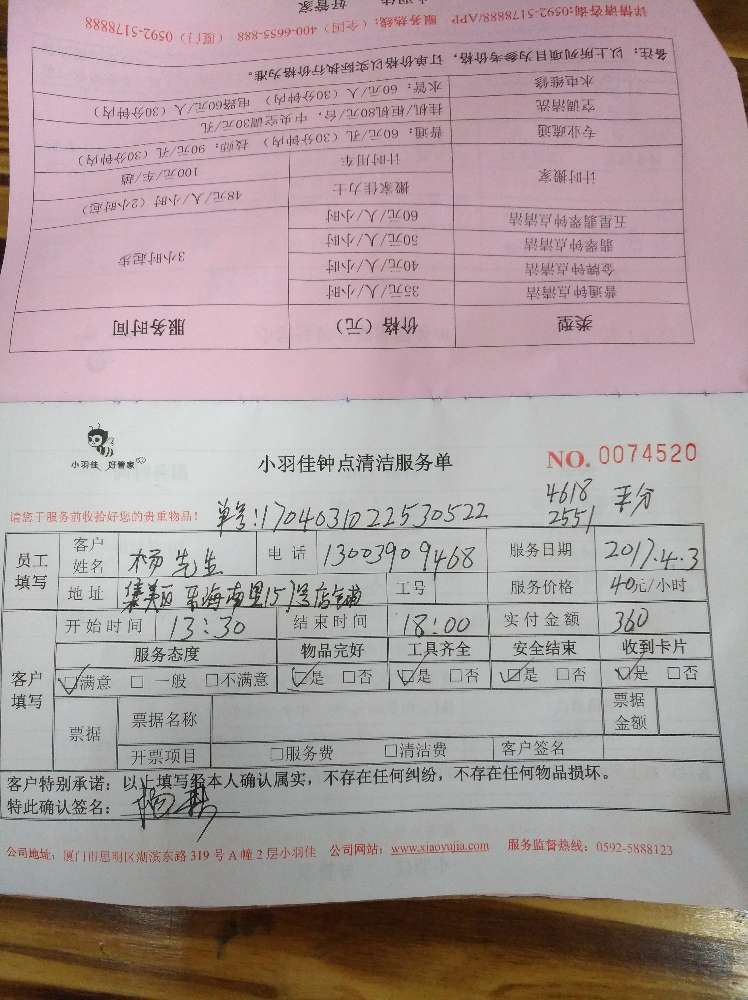 小羽佳 好管家
详情请咨询:0592-5178888/APP 服务热线:(全国)400-6655-888 (厦门) 0592-5178888
备注:以上所列项目为参考价格,订单价格以实际执行价格为准。
水电维修 水管:60元/人(30分钟内) 电路60元/人(30分钟内)
空调清洗 挂机/柜机80元/台,中央空调30元/孔
专业疏通 普通:60元/孔(30分钟内) 技师:90元/孔(30分钟内)
计时搬家 计时用车 100元/车/趟
搬家佳力士 48元/人/小时(2小时起)
五星翡翠钟点清洁 60元/人/小时
翡翠钟点清洁 50元/人/小时 3小时起步
金牌钟点清洁 40元/人/小时
普通钟点清洁 35元/人/小时
类型 价格(元) 服务时间
小羽佳 好管家
小羽佳钟点清洁服务单 NO. 0074520
请您于服务前收拾好您的贵重物品! 单号:1704031022530522 4618 2551 平分
员工填写 客户姓名 杨先生 电话 13003909468 服务日期 2017.4.3
地址 集美区东海南里157号店铺 工号 服务价格 40元/小时
客户填写 开始时间 13:30 结束时间 18:00 实付金额 360
服务态度 物品完好 工具齐全 安全结束 收到卡片
☑满意 □一般 □不满意 ☑是 □否 ☑是 □否 ☑是 □否 ☑是 □否
票据 票据名称 票据金额
开票项目 □服务费 □清洁费 客户签名
客户特别承诺:以上填写经本人确认属实,不存在任何纠纷,不存在任何物品损坏。
特此确认签名:
公司地址:厦门市思明区湖滨东路319号A幢2层小羽佳 公司网站:www.xiaoyujia.com 服务监督热线:0592-5888123